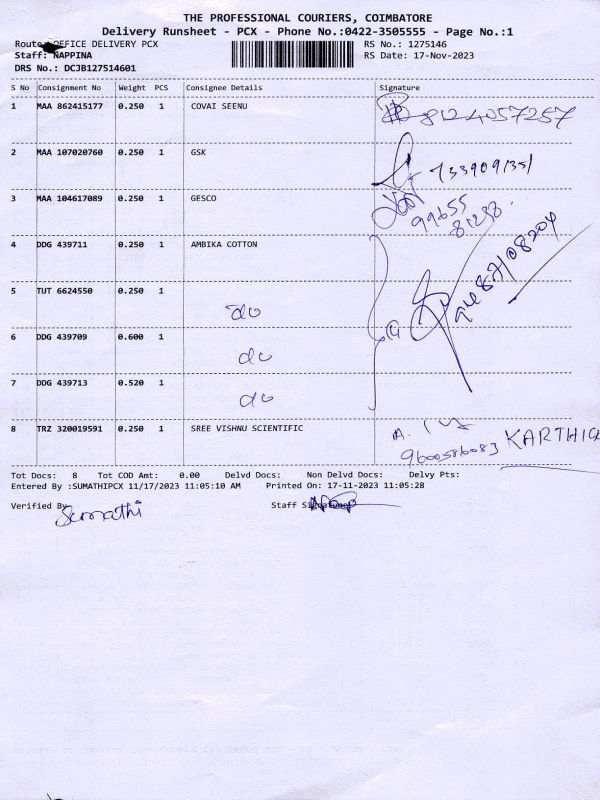 THE PROFESSIONAL COURIERS, COIMBATORE
Delivery Runsheet - PCX - Phone No.:0422-3505555 - Page No.:1
Route OFFICE DELIVERY PCX RS No.: 1275146
Staff: NAPPINA RS Date: 17-Nov-2023
DRS No.: DCJB127514601
S No Consignment No Weight PCS Consignee Details Signature
1 MAA 862415177 0.250 1 COVAI SEENU 8124057257
2 MAA 107020760 0.250 1 GSK 7339091351
3 MAA 104617089 0.250 1 GESCO 99655
81238
4 DDG 439711 0.250 1 AMBIKA COTTON
5 TUT 6624550 0.250 1 do
6 DDG 439709 0.600 1 do
7 DDG 439713 0.520 1 do
8 TRZ 320019591 0.250 1 SREE VISHNU SCIENTIFIC
9600586083 KARTHICK
Tot Docs: 8 Tot COD Amt: 0.00 Delvd Docs: Non Delvd Docs: Delvy Pts:
Entered By :SUMATHIPCX 11/17/2023 11:05:10 AM Printed On: 17-11-2023 11:05:28
Verified By Staff Signature
Sumathi